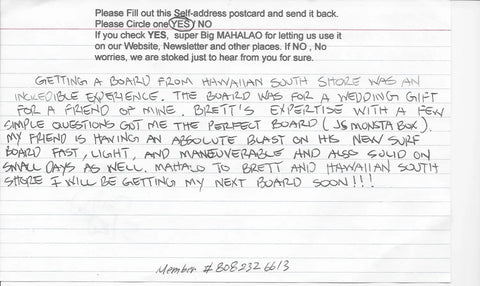 Please Fill out this Self-address postcard and send it back.
Please Circle one YES / NO
If you check YES, super Big MAHALAO for letting us use it
on our Website, Newsletter and other places. If NO , No
worries, we are stoked just to hear from you for sure.
GETTING A BOARD FROM HAWAIIAN SOUTH SHORE WAS AN
INCREDIBLE EXPERIENCE. THE BOARD WAS FOR A WEDDING GIFT
FOR A FRIEND OF MINE. BRETT'S EXPERTISE WITH A FEW
SIMPLE QUESTIONS GOT ME THE PERFECT BOARD (JS MONSTA BOX).
MY FRIEND IS HAVING AN ABSOLUTE BLAST ON HIS NEW SURF
BOARD FAST, LIGHT, AND MANEUVERABLE AND ALSO SOLID ON
SMALL DAYS AS WELL. MAHALO TO BRETT AND HAWAIIAN SOUTH
SHORE I WILL BE GETTING MY NEXT BOARD SOON!!!
Member # 808 232 6613